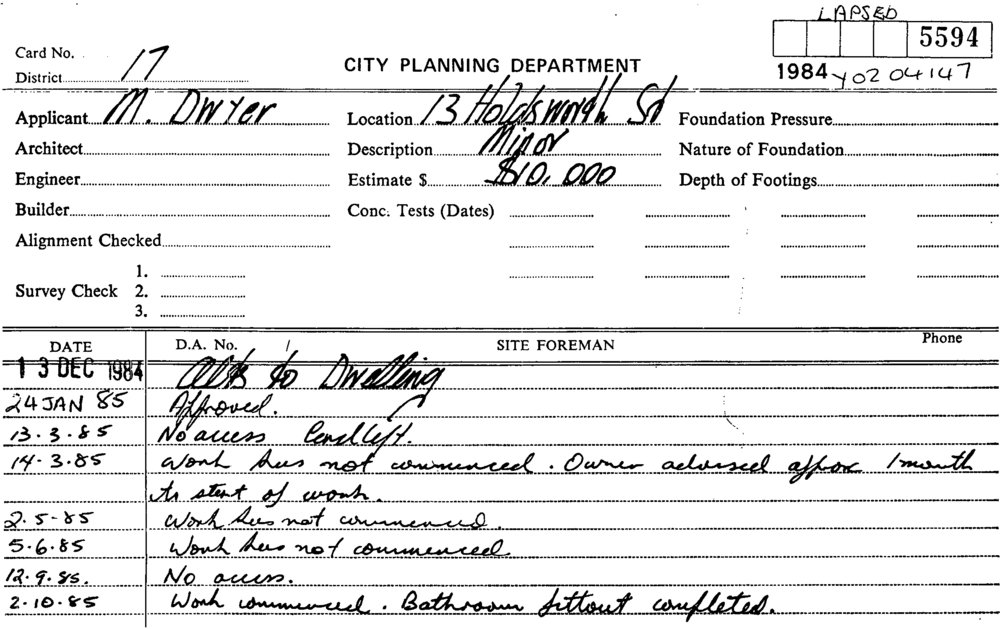 LAPSED
5594
Card No.
District 17
CITY PLANNING DEPARTMENT
1984 Y02 04147
Applicant M. Dwyer Location 13 Holdsworth St Foundation Pressure
Architect Description Minor Nature of Foundation
Engineer Estimate $ $10,000 Depth of Footings
Builder Conc. Tests (Dates)
Alignment Checked
1.
Survey Check 2.
3.
DATE D.A. No. / SITE FOREMAN Phone
13 DEC 1984 Alts to Dwelling
24 JAN 85 Approved.
13.3.85 No access Card left.
14.3.85 Work has not commenced. Owner advised approx 1 month
to start of work.
2.5-85 Work has not commenced.
5.6.85 Work has not commenced
12.9.85. No access.
2.10.85 Work commenced. Bathroom fittout completed.